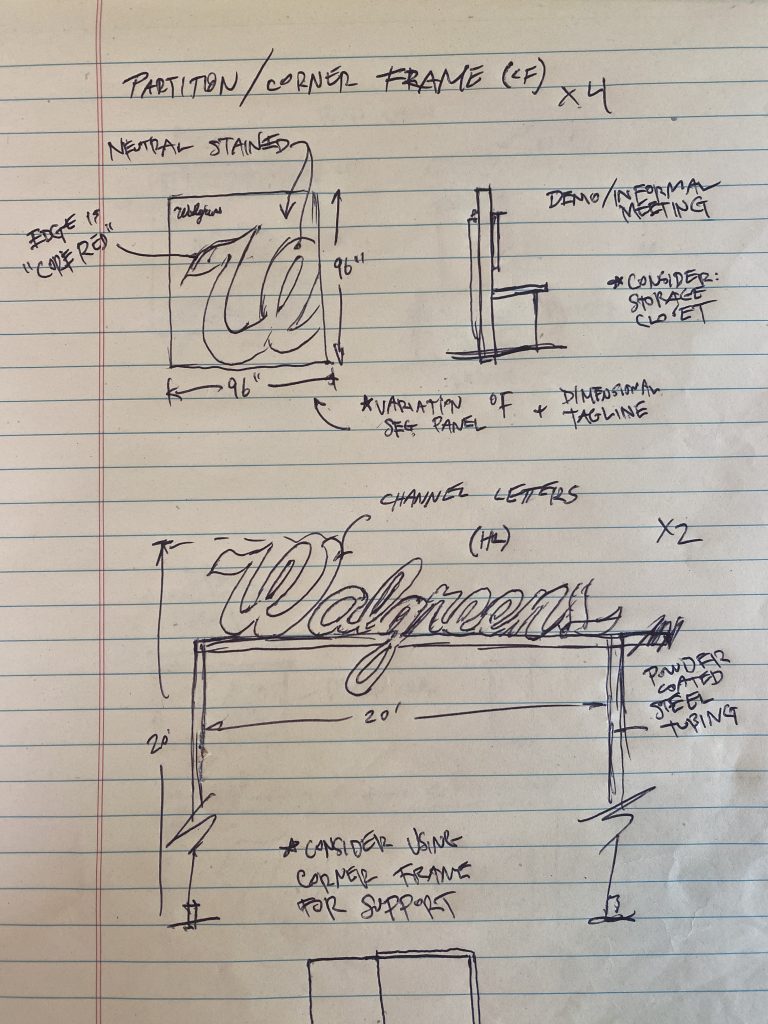 PARTITION/CORNER FRAME (CF) x4
NEUTRAL STAINED
EDGE IS
"CORE RED"
Walgreens
W
96"
96"
DEMO/INFORMAL
MEETING
*CONSIDER:
STORAGE
CLOSET
*VARIATION OF
SEG PANEL
+ DIMENSIONAL
TAGLINE
CHANNEL LETTERS
(HL)
x2
Walgreens
20'
20'
POWDER
COATED
STEEL
TUBING
*CONSIDER USING
CORNER FRAME
FOR SUPPORT